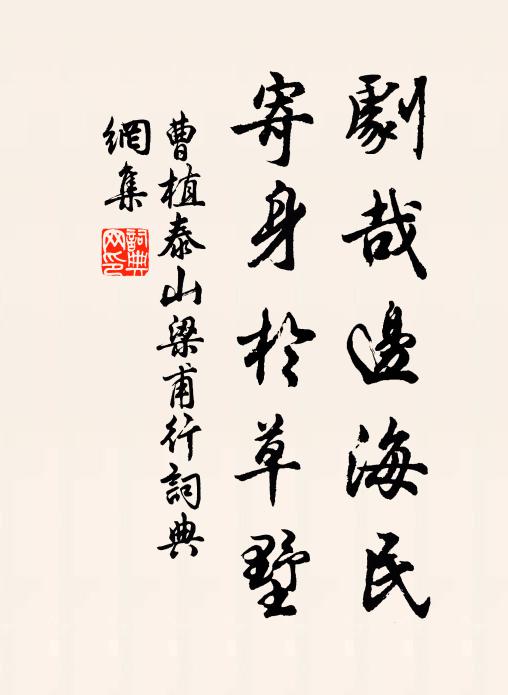 劇哉邊海民
寄身於草墅
曹植泰山梁甫行詞典
網集
詞典
网印